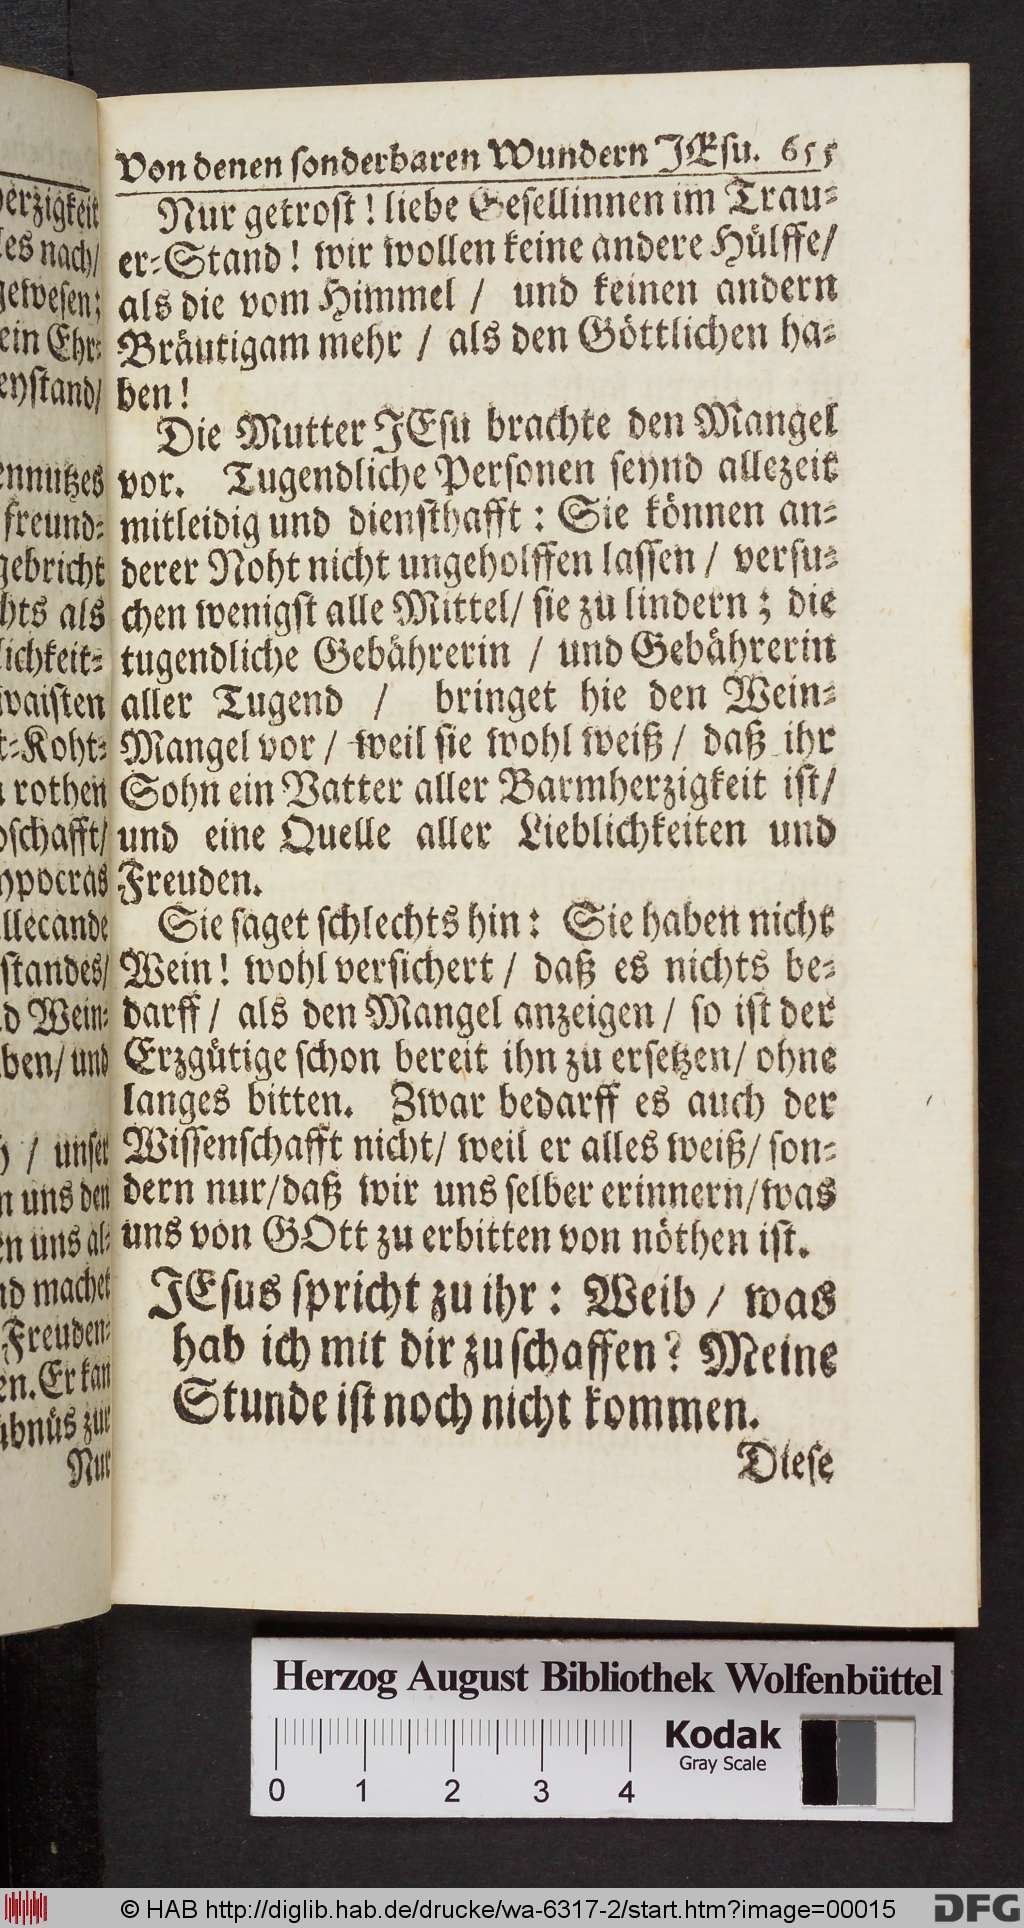 Von denen sonderbaren Wundern JEsu. 655
Nur getrost! liebe Gesellinnen im Trau-
er-Stand! wir wollen keine andere Hülffe/
als die vom Himmel / und keinen andern
Bräutigam mehr / als den Göttlichen ha-
ben!
Die Mutter JEsu brachte den Mangel
vor. Tugendliche Personen seynd allezeit
mitleidig und diensthafft: Sie können an-
derer Noht nicht ungeholffen lassen / versu-
chen wenigst alle Mittel/ sie zu lindern; die
tugendliche Gebährerin / und Gebährerin
aller Tugend / bringet hie den Wein-
Mangel vor / weil sie wohl weiß / daß ihr
Sohn ein Vatter aller Barmherzigkeit ist/
und eine Quelle aller Lieblichkeiten und
Freuden.
Sie saget schlechts hin: Sie haben nicht
Wein! wohl versichert / daß es nichts be-
darff / als den Mangel anzeigen / so ist der
Erzgütige schon bereit ihn zu ersetzen/ ohne
langes bitten. Zwar bedarff es auch der
Wissenschafft nicht/ weil er alles weiß/ son-
dern nur/daß wir uns selber erinnern/was
uns von GOtt zu erbitten von nöthen ist.
JEsus spricht zu ihr: Weib / was
hab ich mit dir zu schaffen? Meine
Stunde ist noch nicht kommen.
Diese
les nach/
gewesen;
ein Ehr-
freund-
gebricht
als
rothen
ypocras
standes/
Wein-
und
/ unser
uns den
uns al-
machet
Freuden-
Er kan
zur
Nur
Herzog August Bibliothek Wolfenbüttel
Kodak
Gray Scale
0 1 2 3 4
© HAB http://diglib.hab.de/drucke/wa-6317-2/start.htm?image=00015
DFG